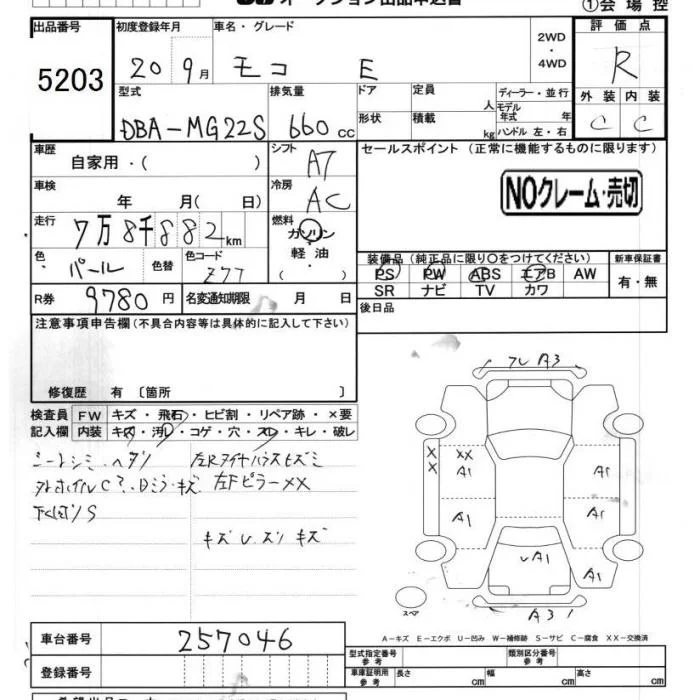 オークション出品申込書
①会場控
出品番号
5203
初度登録年月
20 9月
車名・グレード
モコ E
2WD
・
4WD
評価点
R
型式
DBA-MG22S
排気量
660 cc
ドア
形状
定員
人
積載
kg
ディーラー・並行
モデル
年式 年
ハンドル 左・右
外装 内装
C C
車歴
自家用・( )
シフト
AT
セールスポイント (正常に機能するものに限ります)
NOクレーム・売切
車検
年 月( 日)
冷房
AC
走行
7万8千882km
燃料
ガソリン
・
軽油
( )
色
パール
色替
色コード
Z77
装備品(純正品に限り○をつけてください)
PS PW ABS エアB AW
SR ナビ TV カワ
新車保証書
有・無
R券
9780円
名変通知期限 月 日
後日品
注意事項申告欄(不具合内容等は具体的に記入して下さい)
修復歴 有〔箇所 〕
検査員
記入欄
FW キズ・飛石・ヒビ割・リペア跡・×要
内装 キズ・汚レ・コゲ・穴・スレ・キレ・破レ
シートシミ・ヘタリ
左Rタイヤハウスヒズミ
左FピラーXX
下廻りS
キズ U.スリキズ
フレ A3
XX
X
X
A1
A1
A1
A1
A1
UA1
A1
A3
スペア
A-キズ E-エクボ U-凹み W-補修跡 S-サビ C-腐食 XX-交換済
車台番号
257046
登録番号
型式指定番号
参考
類別区分番号
参考
車庫証明用
参考
長さ cm 幅 cm 高さ cm